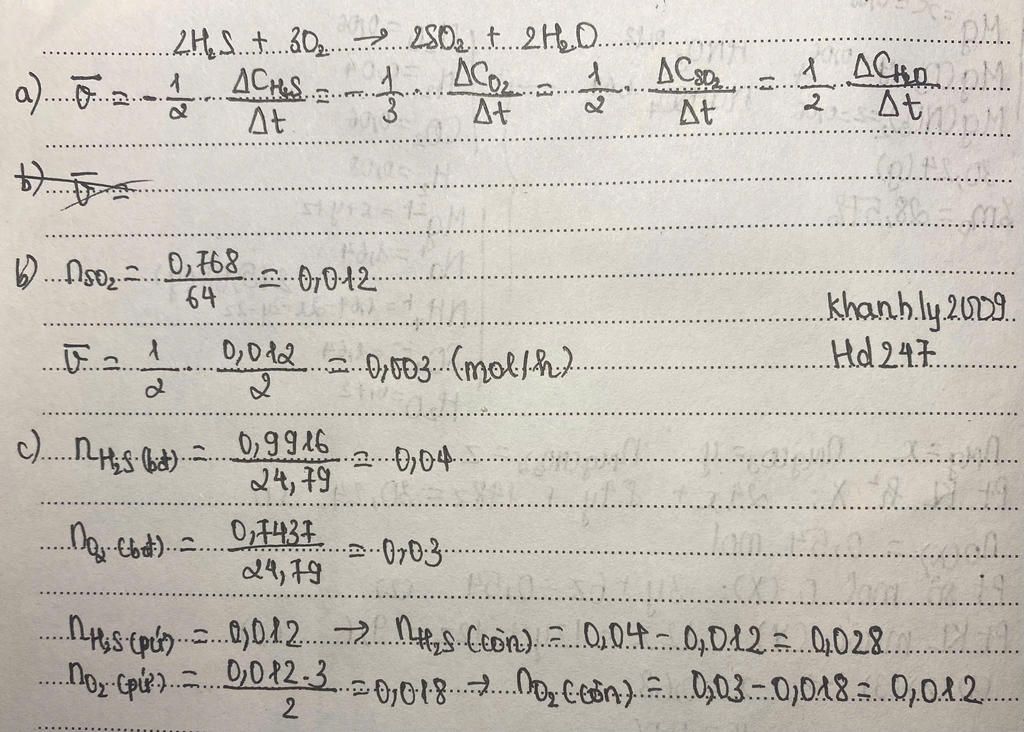 2H₂S + 3O₂ → 2SO₂ + 2H₂O
a) v̄ = - 1/2 . ΔC_H₂S/Δt = - 1/3 . ΔC_O₂/Δt = 1/2 . ΔC_SO₂/Δt = 1/2 . ΔC_H₂O/Δt
b) v̄ =
b) n_SO₂ = 0,768/64 = 0,012
khanh.ly.2009
v̄ = 1/2 . 0,012/2 = 0,003 (mol/h)
Hd247
c) n_H₂S (bđ) = 0,9916/24,79 = 0,04
n_O₂ (bđ) = 0,7437/24,79 = 0,03
n_H₂S (pứ) = 0,012 → n_H₂S (còn) = 0,04 - 0,012 = 0,028
n_O₂ (pứ) = 0,012.3/2 = 0,018 → n_O₂ (còn) = 0,03 - 0,018 = 0,012